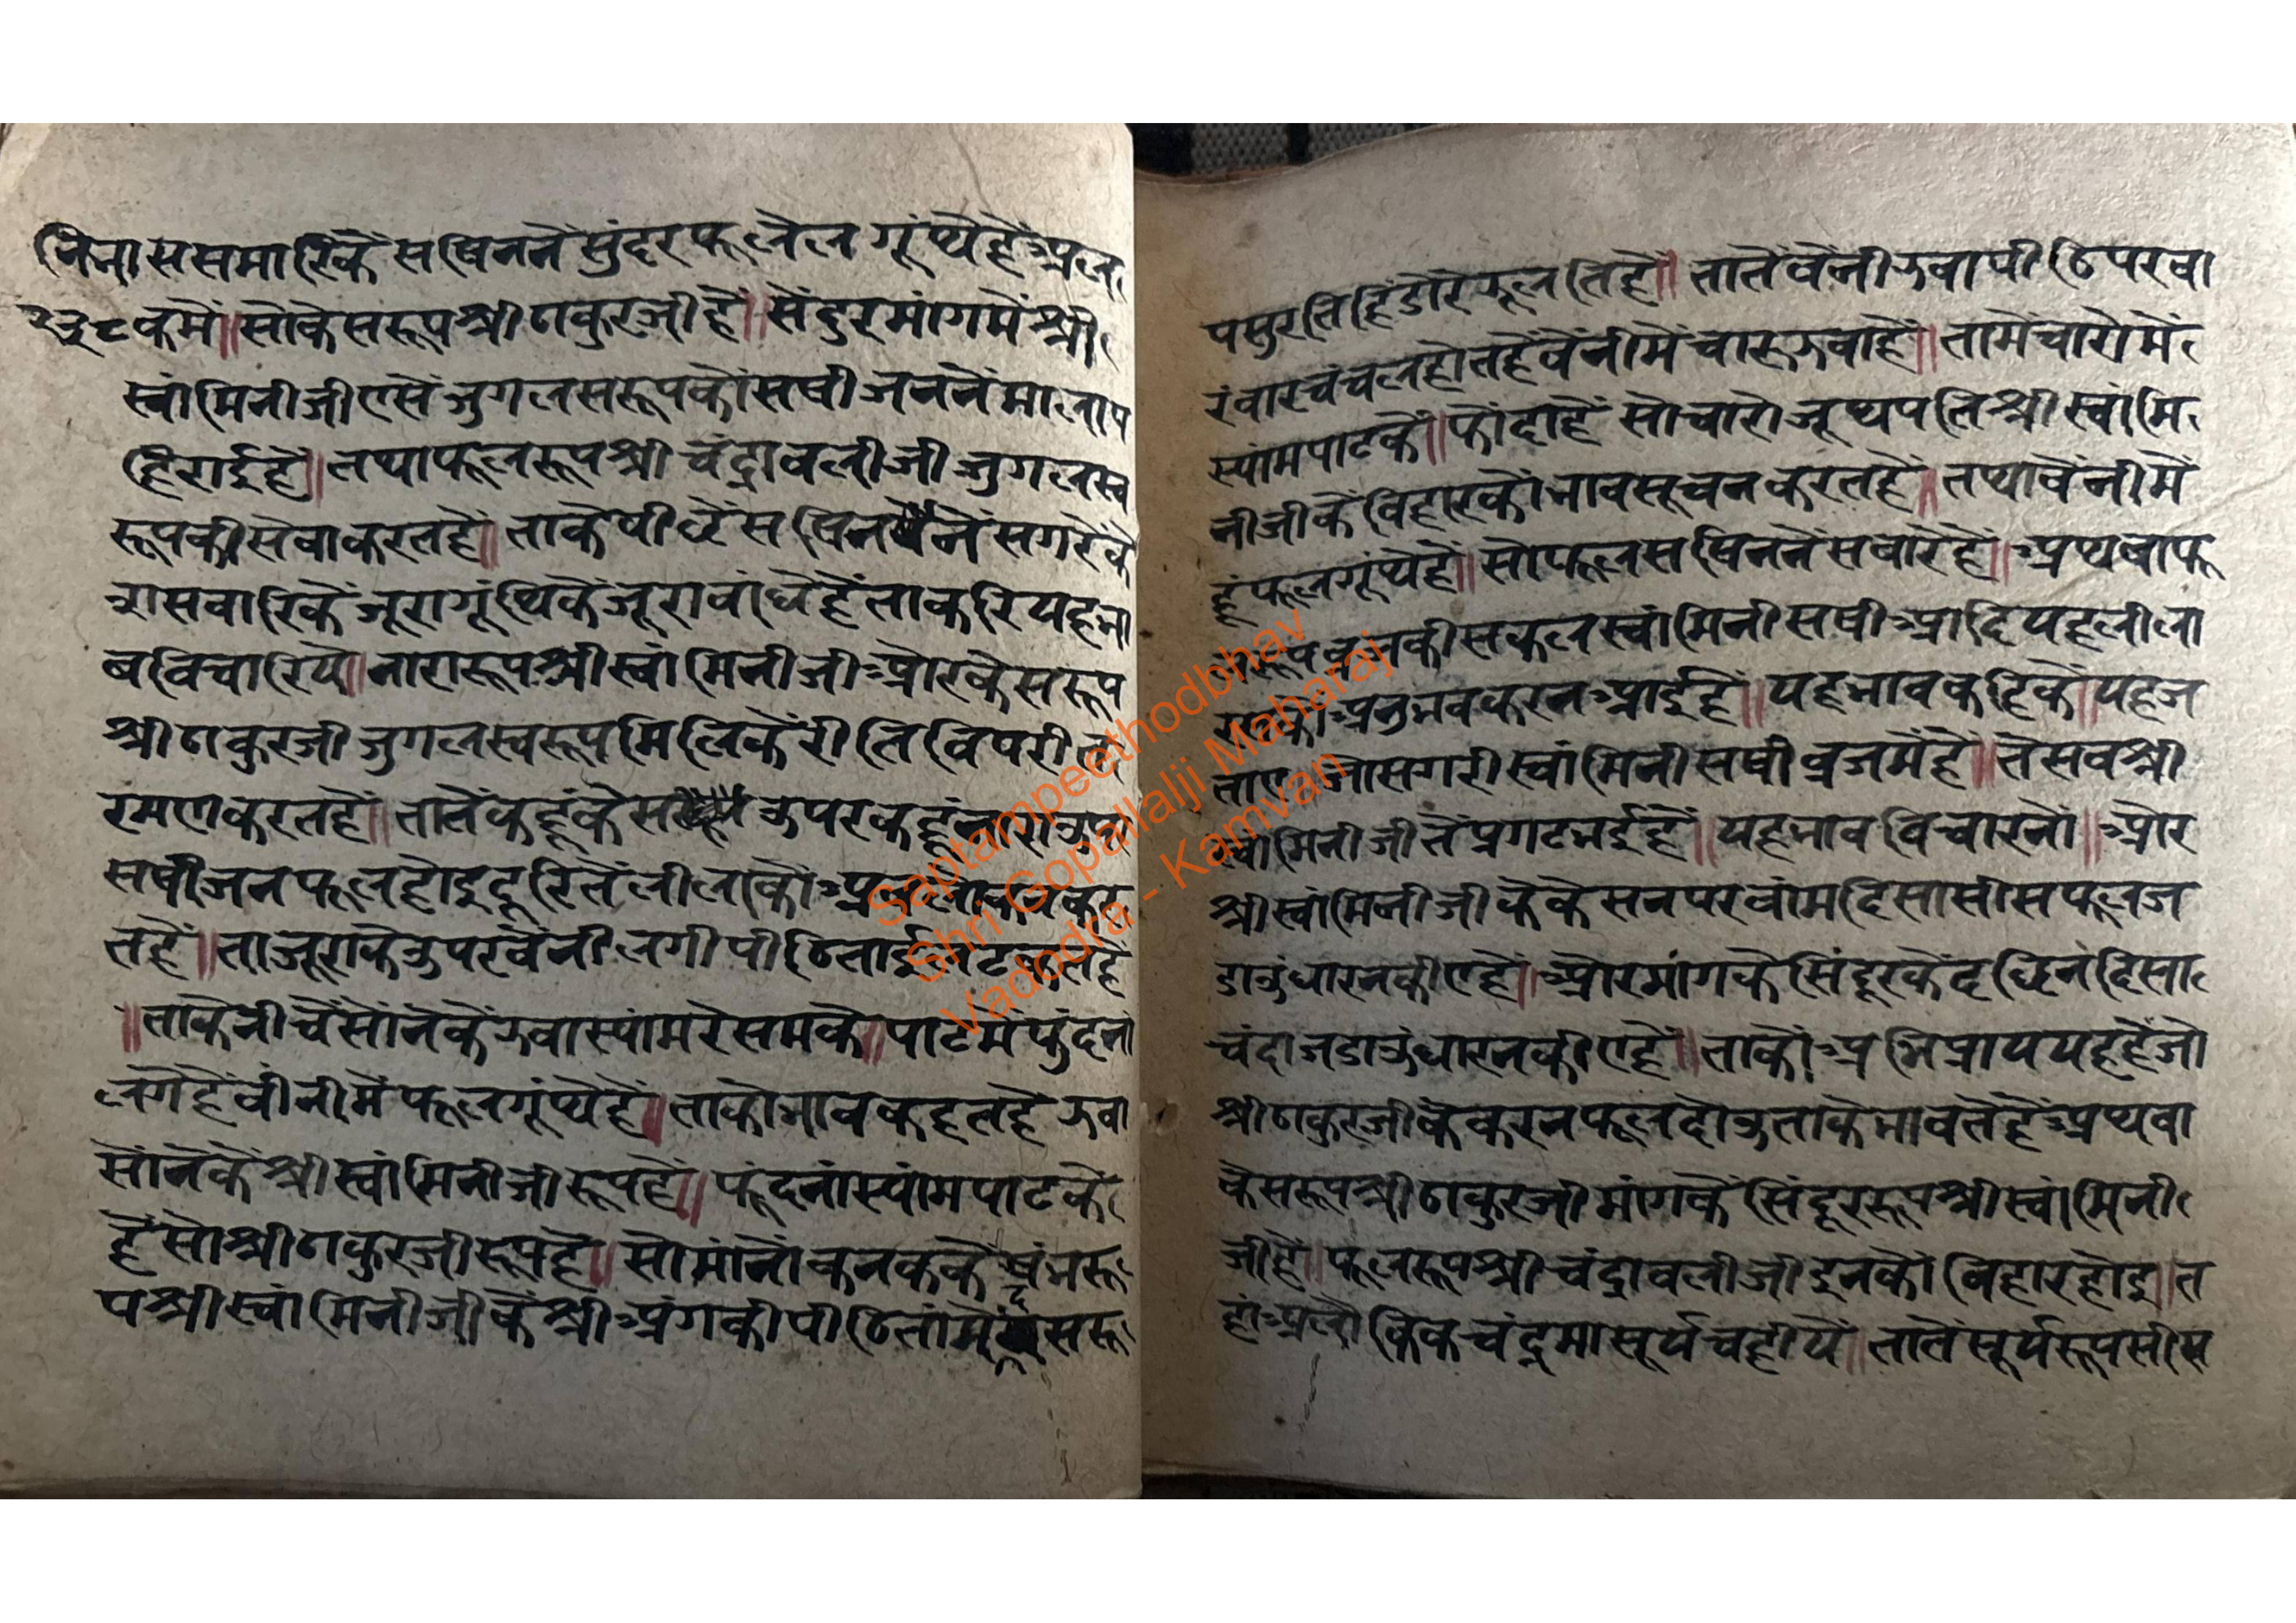 सषिननें सुंदर फूलेल गूंथेहैं अल
२३८ कमें॥ सोकेसरूप श्रीठाकुरजीहैं॥ सेंदुरमांगमें श्री
स्वांमिनीजी एसें जुगलसरूपकों सषीजननें मालाप
हिराईहै॥ तथाफूलरूप श्रीचंद्रावलीजी जुगलस्व
रूपकी सेवाकरतहैं॥ ताकेपीछें सषिननें सगरेके
रासवारिकें जूरागूंथिकें जूराबांधेहैं ताकरियहभा
बविचारियै॥ नारारूप श्रीस्वांमिनीजी औरकेसरूप
श्रीठाकुरजी जुगलस्वरूपमिलिकें रीतिविपरीत
रमणकरतहैं॥ तातेंकहूंकेस उपरकहूंनाराउप
सषीजनफूलहोइदूरितें लीलाकौ
तहैं॥ ताजूराकेउपरबेंनीलगी पीठिताई
॥ ताकेनीचेंसोंनेकें झवास्यांमरेसमके॥ पाटमेंफुंदना
लगेहैं बींनीमेंफूलगूंथेहैं॥ ताकोभावकहतहै झवा
सोंनेकें श्रीस्वांमिनीजीरूपहैं॥ फूंदनांस्यांमपाटके
हैसो श्रीठाकुरजीरूपहै॥ सोमांनोंकनककें षंभरू
प श्रीस्वांमिनीजीकें श्रीअंगकीपीठितामें सरू
पसुरतिहिंडोरेंझूलतिहै॥ तातेंबेंनीझवापीठिपरवा
रंवारचंचलहोतहैं बेंनीमेंचारूझवाहैं॥ तामेंचारोमें
स्यांमपाटकें॥ फोंदाहैं सोचारोजूथपति श्रीस्वांमि
नीजीकेविहारकों भावसूचनकरतहैं॥ तथाबेंनीमें
हूंफूलगूंथेहैं॥ सोफूलसषिननें सवारेहैं॥ अथवाफू
लरूपव्रजकीसकलस्वांमिनी सषीआदियहलीला
अनुभवकरनआईहैं॥ यहभावकहिकें॥ यहज
सगरीस्वांमिनीसषी व्रजमेंहै॥ तेसब श्री
स्वांमिनीजीतें प्रगटभईहैं॥ यहभावविचारनों॥ और
श्रीस्वांमिनीजीकेकेसनपरबांमदिसासीसफूलज
डाउंधारनकीएहै॥ औरमांगकेसिंदूरकेंदछिनदिसा
चंदाजडाउंधारनकीएहैं॥ ताकोअभिप्राययहहैजो
श्रीठाकुरजीकेकरनफूलदोउ ताकेभावतेहैं अथवा
केसरूप श्रीठाकुरजी मांगकेसिंदूररूप श्रीस्वांमिनी
जीहैं॥ फूलरूप श्रीचंद्रावलीजी इनकोविहारहोइ॥ त
हांअलौकिकचंद्रमासूर्यचहीयें॥ तातेंसूर्यरूपसीस
Saptampeethodbhav
Shri Gopallalji Maharaj
Vadodra - Kamvan